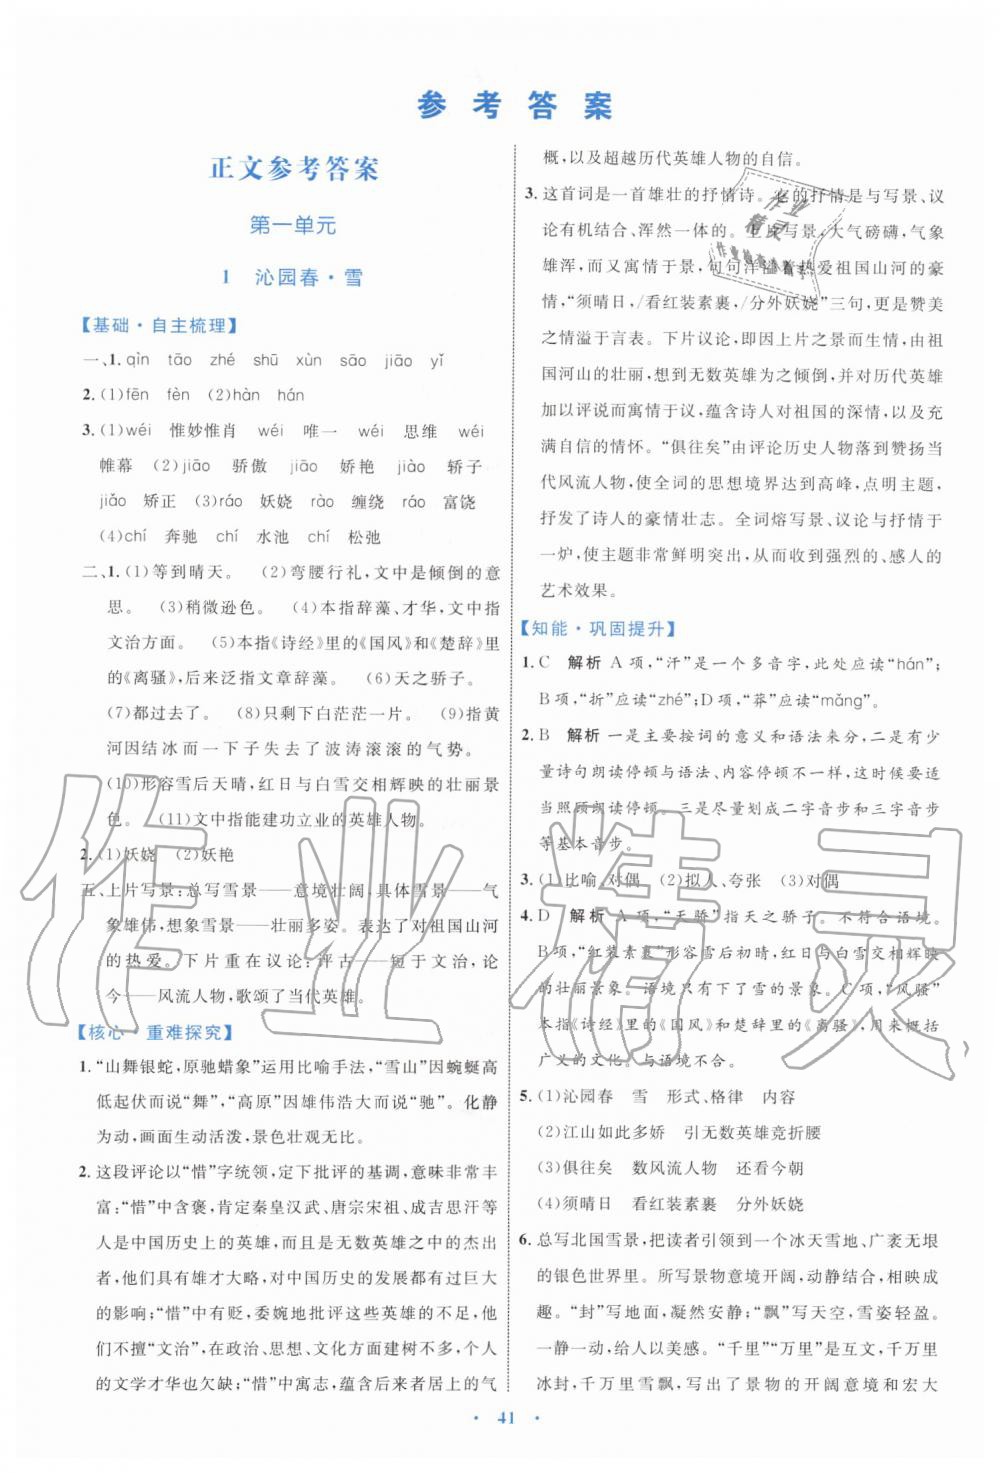 参考答案
正文参考答案
第一单元
1 沁园春·雪
【基础·自主梳理】
一、1. qìn tāo zhé shū xùn sāo jiāo yǐ
2. (1)fēn fèn (2)hàn hán
3. (1)wéi 惟妙惟肖 wéi 唯一 wéi 思维 wéi
帷幕 (2)jiāo 骄傲 jiāo 娇艳 jiào 轿子
jiǎo 矫正 (3)ráo 妖娆 rào 缠绕 ráo 富饶
(4)chí 奔驰 chí 水池 chí 松弛
二、1.(1)等到晴天。 (2)弯腰行礼,文中是倾倒的意
思。 (3)稍微逊色。 (4)本指辞藻、才华,文中指
文治方面。 (5)本指《诗经》里的《国风》和《楚辞》里
的《离骚》,后来泛指文章辞藻。 (6)天之骄子。
(7)都过去了。 (8)只剩下白茫茫一片。 (9)指黄
河因结冰而一下子失去了波涛滚滚的气势。
(10)形容雪后天晴,红日与白雪交相辉映的壮丽景
色。 (11)文中指能建功立业的英雄人物。
2. (1)妖娆 (2)妖艳
五、上片写景:总写雪景——意境壮阔,具体雪景——气
象雄伟,想象雪景——壮丽多姿。表达了对祖国山河
的热爱。下片重在议论:评古——短于文治,论
今——风流人物,歌颂了当代英雄。
【核心·重难探究】
1. “山舞银蛇,原驰蜡象”运用比喻手法,“雪山”因蜿蜒高
低起伏而说“舞”,“高原”因雄伟浩大而说“驰”。化静
为动,画面生动活泼,景色壮观无比。
2. 这段评论以“惜”字统领,定下批评的基调,意味非常丰
富:“惜”中含褒,肯定秦皇汉武、唐宗宋祖、成吉思汗等
人是中国历史上的英雄,而且是无数英雄之中的杰出
者,他们都具有雄才大略,对中国历史的发展都有过巨大
的影响;“惜”中有贬,委婉地批评这些英雄的不足,他
们不擅“文治”,在政治、思想、文化方面建树较少,个人
的文学才华也欠缺;“惜”中寓志,蕴含作者后来居上的气
概,以及超越历代英雄人物的自信。
3. 这首词是一首雄壮的抒情诗。它的抒情是与写景、议
论有机结合、浑然一体的。上片写景,大气磅礴,气象
雄浑,而又寓情于景,句句洋溢着热爱祖国山河的豪
情,“须晴日,/看红装素裹,/分外妖娆”三句,更是赞美
之情溢于言表。下片议论,即因上片之景而生情,由祖
国河山的壮丽,想到无数英雄为之倾倒,并对历代英雄
加以评说而寓情于议,蕴含诗人对祖国的深情,以及充
满自信的情怀。“俱往矣”由评论历史人物落到赞扬当
代风流人物,使全词的思想境界达到高峰,点明主题,
抒发了诗人的豪情壮志。全词熔写景、议论与抒情于
一炉,使主题非常鲜明突出,从而收到强烈的、感人的
艺术效果。
【知能·巩固提升】
1. C 解析 A项,“汗”是一个多音字,此处应读“hán”;
B项,“折”应读“zhé”;D项,“莽”应读“mǎng”。
2. B 解析 一是主要按词的意义和语法来分,二是有少
量诗句朗读停顿与语法、内容停顿不一样,这时候要适
当照顾朗读停顿。三是尽量划成二字音步和三字音步
等基本音步。
3. (1)比喻、对偶 (2)拟人、夸张 (3)对偶
4. D 解析 A项,“天骄”指天之骄子。不符合语境。
B项,“红装素裹”形容雪后初晴,红日与白雪交相辉映
的壮丽景象。语境只有下了雪的景象。C项,“风骚”
本指《诗经》里的《国风》和楚辞里的《离骚》,用来概括
广义的文化。与语境不合。
5. (1)沁园春 雪 形式、格律 内容
(2)江山如此多娇 引无数英雄竞折腰
(3)俱往矣 数风流人物 还看今朝
(4)须晴日 看红装素裹 分外妖娆
6. 总写北国雪景,把读者引领到一个冰天雪地、广袤无垠
的银色世界里。所写景物意境开阔,动静结合,相映成
趣。“封”写地面,凝然安静;“飘”写天空,雪姿轻盈。
一静一动,给人以美感。“千里”“万里”是互文,千万里
冰封,千万里雪飘,写出了景物的开阔意境和宏大
· 41 ·
作业精灵
作业
精灵